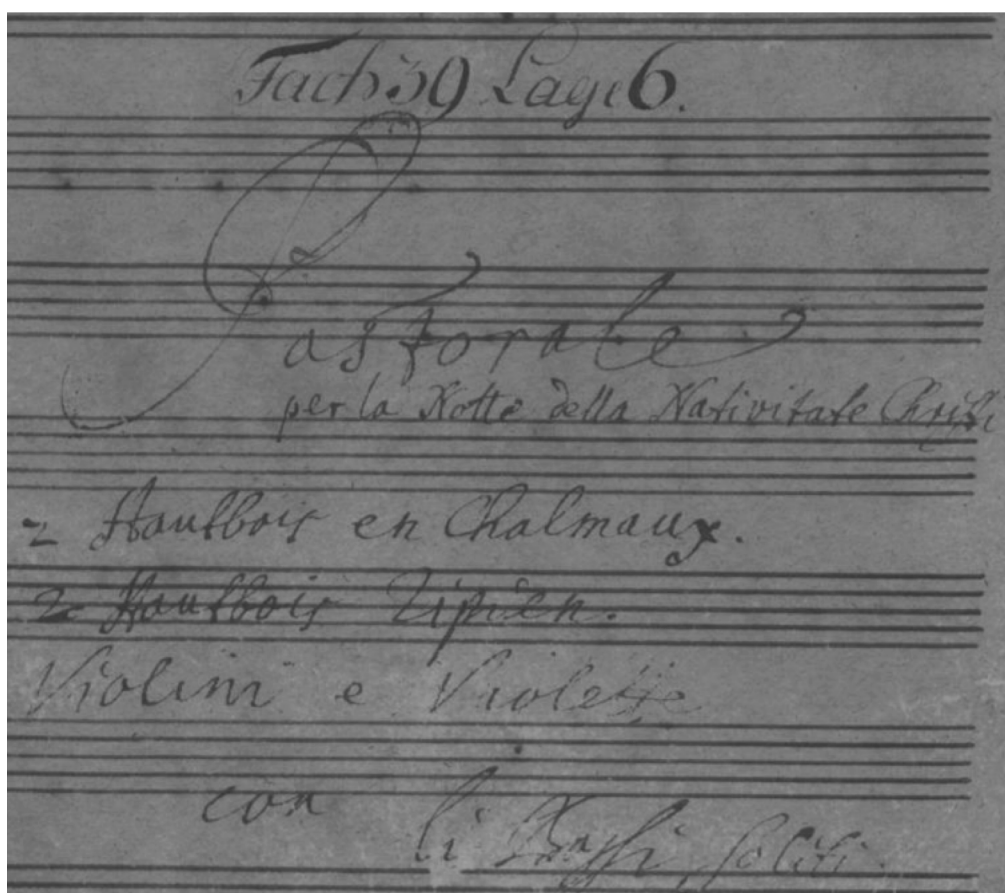 Fach 39 Lage 6.
Pastorale
per la Notte della Nativitate Christi
2 Hautbois en Chalmaux.
2 Hautbois Ripien.
Violini e Violette
con
li Bassi soliti.